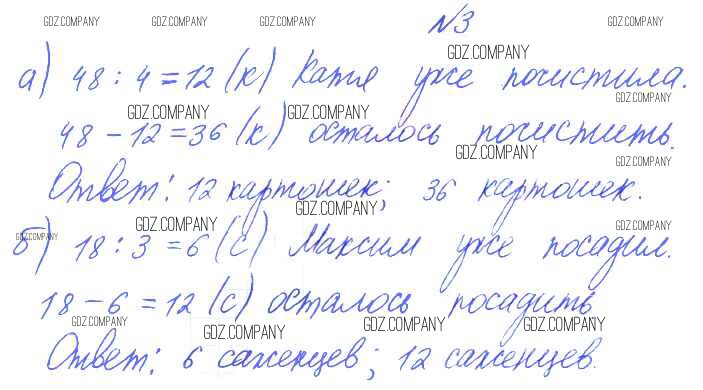 GDZ.COMPANY GDZ.COMPANY GDZ.COMPANY №3 GDZ.COMPANY
GDZ.COMPANY
а) 48 : 4 = 12 (к) Катя уже почистила.
GDZ.COMPANY
GDZ.COMPANY GDZ.COMPANY
48 - 12 = 36 (к) осталось почистить.
GDZ.COMPANY GDZ.COMPANY
Ответ: 12 картошек; 36 картошек.
GDZ.COMPANY
GDZ.COMPANY GDZ.COMPANY
GDZ.COMPANY
б) 18 : 3 = 6 (с) Максим уже посадил.
18 - 6 = 12 (с) осталось посадить
GDZ.COMPANY GDZ.COMPANY GDZ.COMPANY GDZ.COMPANY
Ответ: 6 саженцев; 12 саженцев.